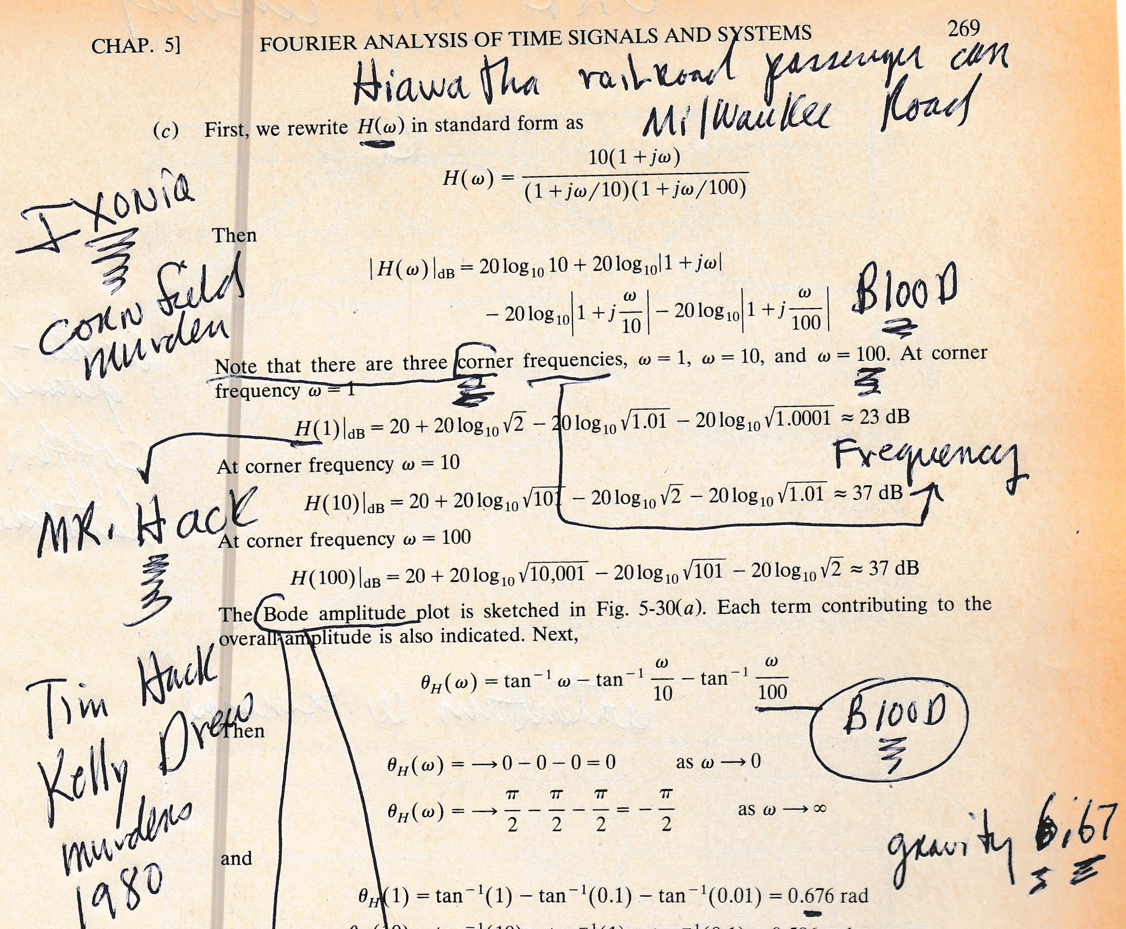 CHAP. 5] FOURIER ANALYSIS OF TIME SIGNALS AND SYSTEMS 269
Hiawatha railroad passenger cars
Milwaukee Road
(c) First, we rewrite H(ω) in standard form as
H(ω) = 10(1 + jω) / (1 + jω/10)(1 + jω/100)
IXONia
Then
|H(ω)|dB = 20 log10 10 + 20 log10|1 + jω|
− 20 log10|1 + j ω/10| − 20 log10|1 + j ω/100|
BlOOD
CORN field
murder
Note that there are three corner frequencies, ω = 1, ω = 10, and ω = 100. At corner
frequency ω = 1
H(1)|dB = 20 + 20 log10 √2 − 20 log10 √1.01 − 20 log10 √1.0001 ≈ 23 dB
Frequency
At corner frequency ω = 10
H(10)|dB = 20 + 20 log10 √101 − 20 log10 √2 − 20 log10 √1.01 ≈ 37 dB
MR. Hack
At corner frequency ω = 100
H(100)|dB = 20 + 20 log10 √10,001 − 20 log10 √101 − 20 log10 √2 ≈ 37 dB
The Bode amplitude plot is sketched in Fig. 5-30(a). Each term contributing to the
overall amplitude is also indicated. Next,
θH(ω) = tan⁻¹ ω − tan⁻¹ ω/10 − tan⁻¹ ω/100
BlOOD
Tim Hack
Kelly Drew
murders
1980
Then
θH(ω) = → 0 − 0 − 0 = 0 as ω → 0
θH(ω) = → π/2 − π/2 − π/2 = − π/2 as ω → ∞
gravity 6.67
and
θH(1) = tan⁻¹(1) − tan⁻¹(0.1) − tan⁻¹(0.01) = 0.676 rad